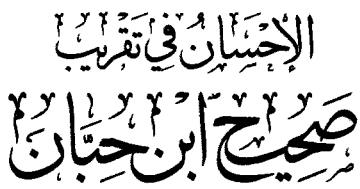 الإِحْسَانُ فِي تَقْرِيبِ
صَحِيحِ ابْنِ حِبَّانَ